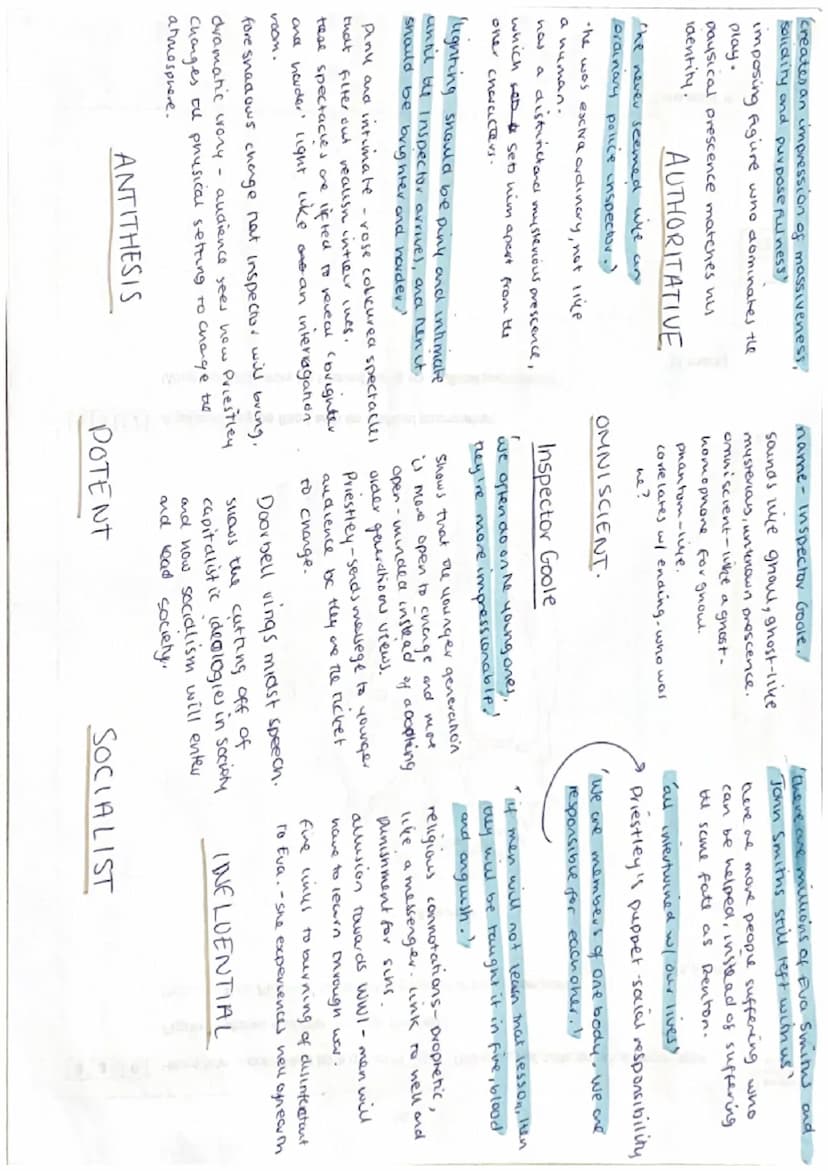 'creates an impression of massiveness,
solidity and purposefulness'
imposing figure who dominates the
play.
physical prescence matches his
identity.
AUTHORITATIVE
'he never seemed like an
ordinary police inspector.'
- he was extra ordinary, not like
a human.
has a distinct and mysterious prescence,
which sets him apart from the
other characters.
'lighting should be pink and intimate
until the Inspector arrives, and then it
should be brighter and harder'
pink and intimate - rose coloured spectacles
that filter out realism in their lives.
these spectacles are lifted to reveal 'brighter
and harder' light like an interrogation
room.
foreshadows change that inspector will bring.
dramatic irony - audience sees how Priestley
changes the physical setting to change the
atmosphere.
ANTITHESIS
name - Inspector Goole.
sounds like ghoul, ghost-like
mysterious, unknown prescence.
omniscient - like a ghost -
homophone for ghoul.
phantom-like.
correlates w/ ending - who was
he?
OMNISCIENT.
Inspector Goole
'we often do on the young ones,
they're more impressionable'
shows that the younger generation
is more open to change and more
open-minded instead of adopting
older generations views.
Priestley - sends message to younger
audience be they are the ticket
to change.
Doorbell rings midst speech.
shows the cutting off of
capitalistic ideologies in society
and how socialism will enter
and lead society.
POTENT
'there are millions of Eva Smiths and
John Smiths still left with us'
there are more people suffering who
can be helped, instead of suffering
the same fate as Brenton.
'all intertwined w/ our lives'
Priestley's puppet - social responsibility
'We are members of one body, we are
responsible for eachother.'
'if men will not learn that lesson, then
they will be taught it in fire, blood
and anguish.'
religious connotations - prophetic,
like a messenger. link to hell and
punishment for sins.
allusion towards WW1 - men will
have to learn through war.
fire links to burning of disinfectant
to Eva. - she experiences hell on earth
INFLUENTIAL
SOCIALIST